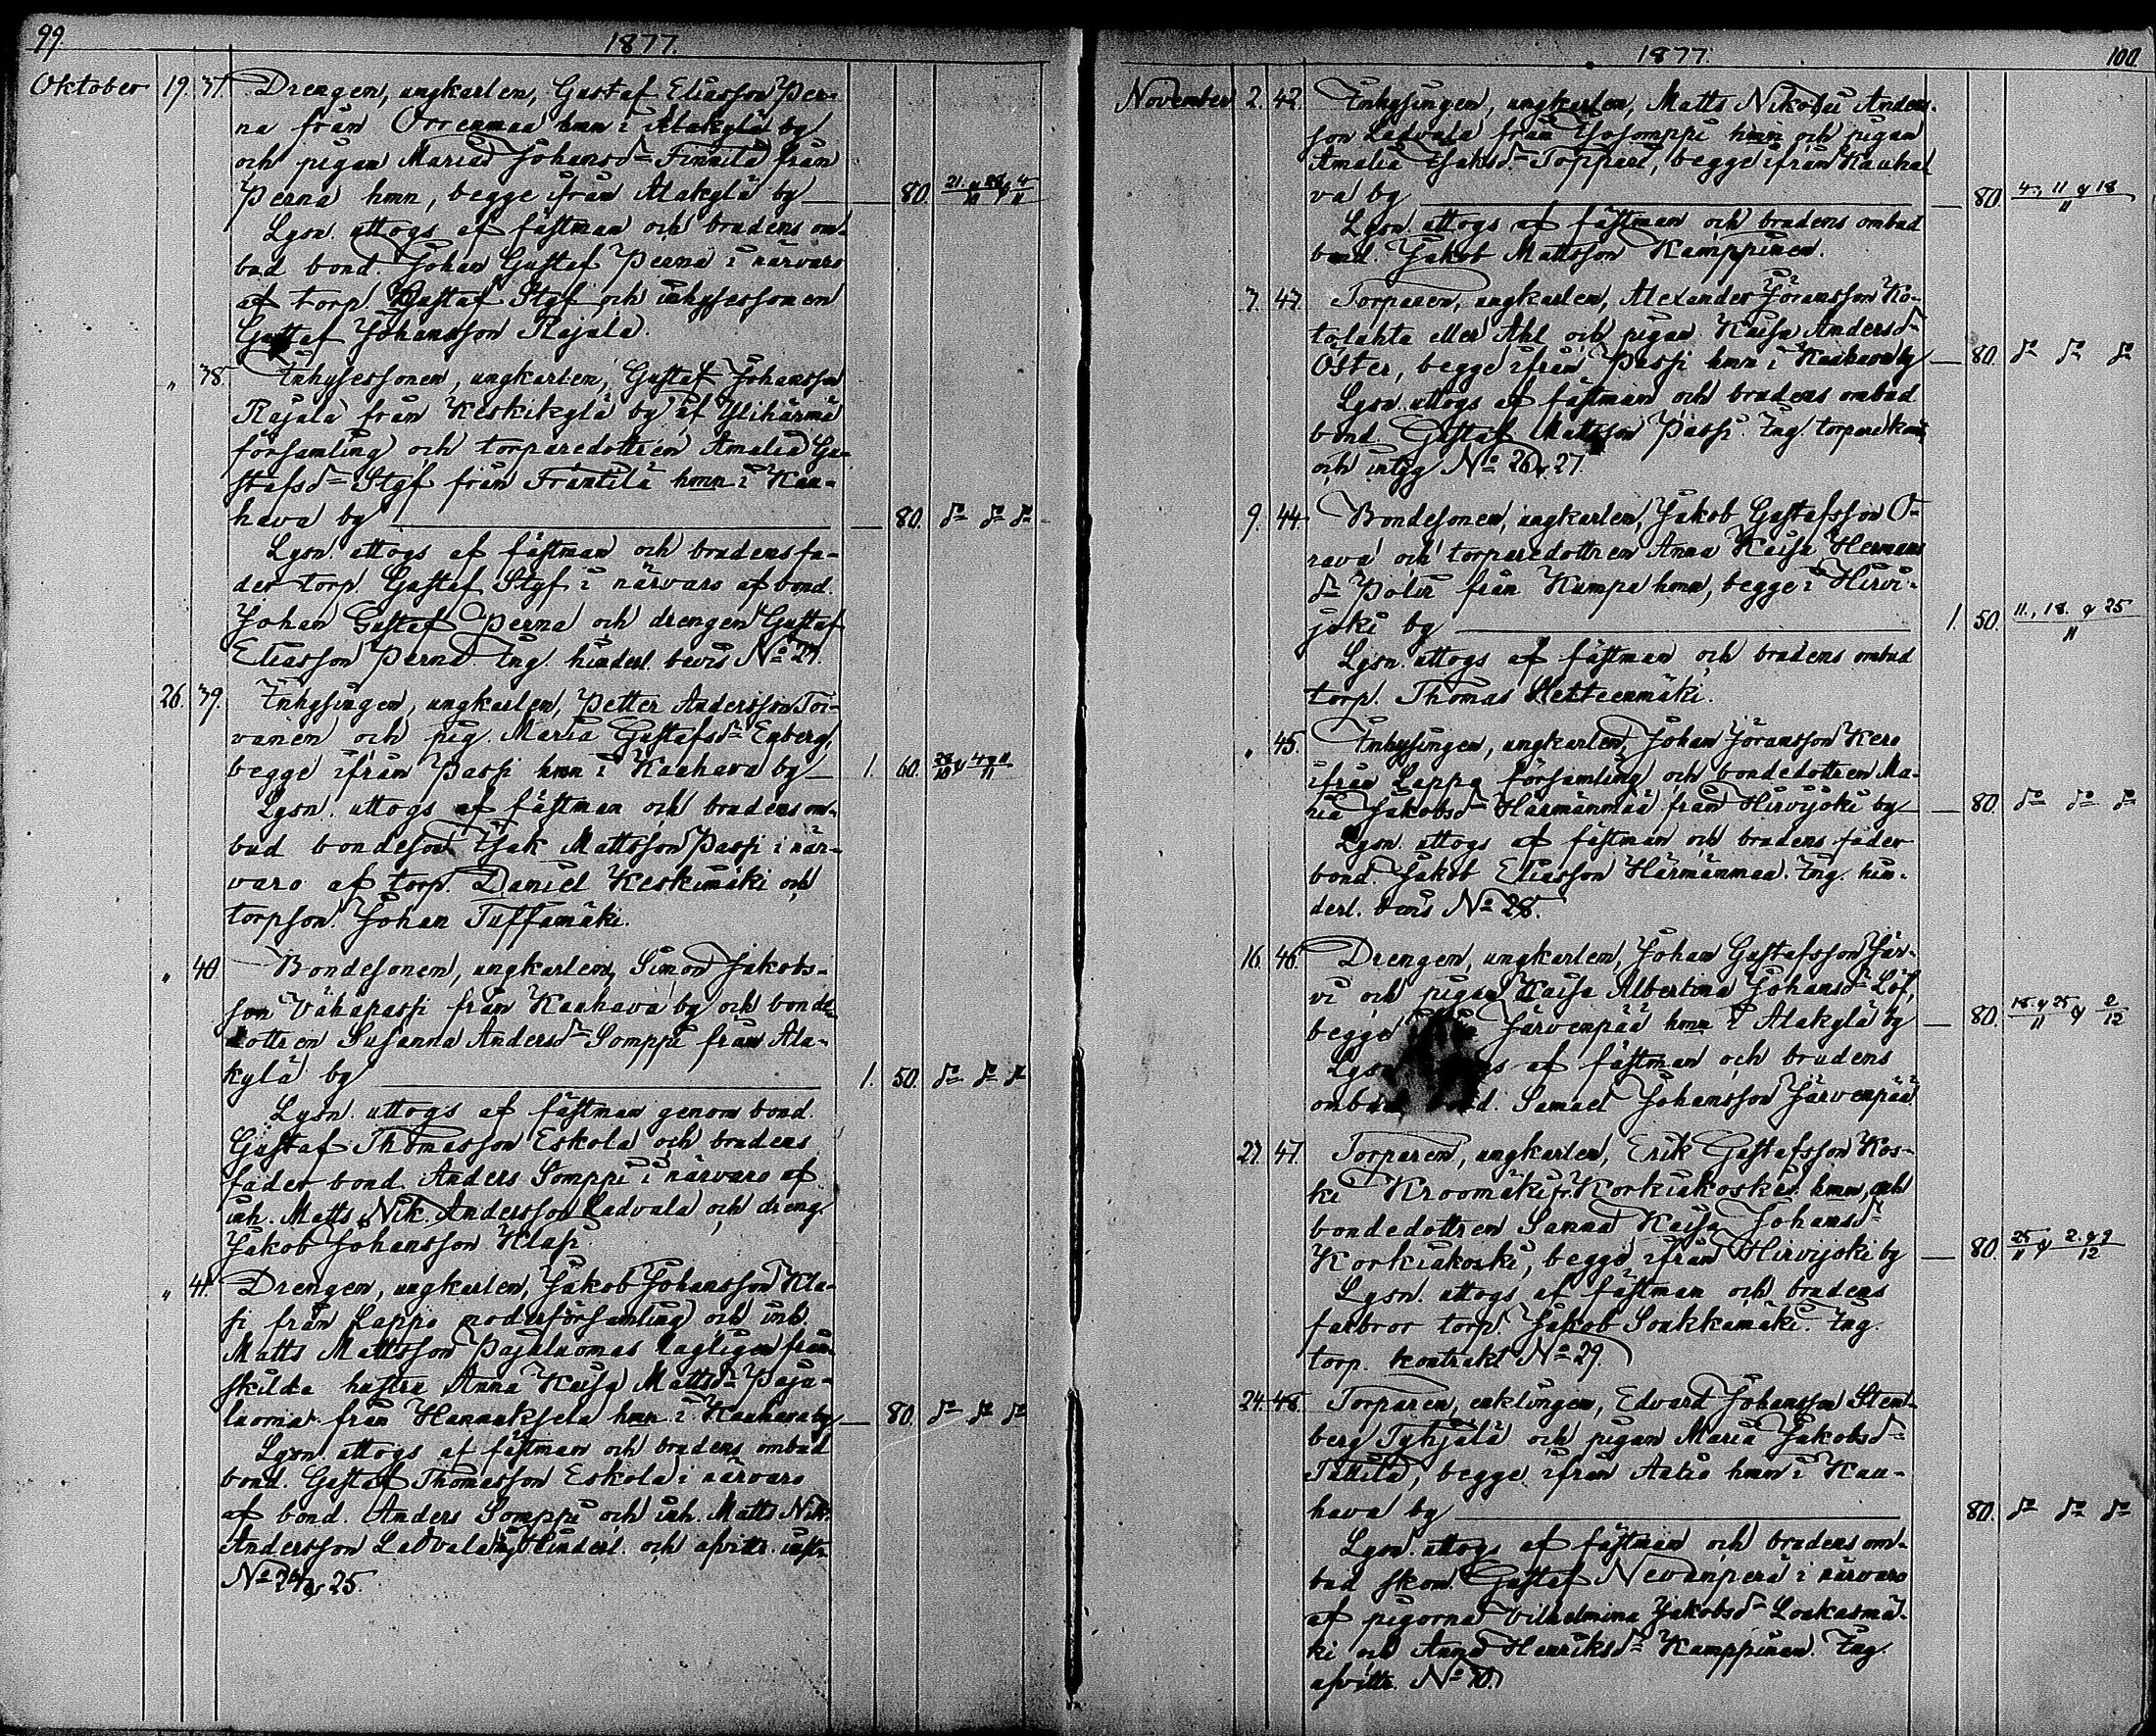 99. 1877.
Oktober 19. 37. Drengen, ungkarlen, Gustaf Eliasson Per-
na från Orrenmaa hmn i Alakylä by
och pigan Maria Johansd Finnilä från
Perna hmn, begge ifrån Alakylä by — 80. 21. & 28/10 & 4/11
Lysn. uttogs af fästman och brudens om-
bud bond. Johan Gustaf Perna i närvaro
af torp. Gustaf Styf och inhysessonen
Gustaf Johansson Rajala.
" 38. Inhysessonen, ungkarlen, Gustaf Johansson
Rajala från Keskikylä by af Ylihärmä
församling och torparedottren Amalia Gu-
stafsd Styf från Frantilä hmn i Kau-
hava by — 80. do do do
Lysn. uttogs af fästman och brudens fa-
der torp. Gustaf Styf i närvaro af bond.
Johan Gustaf Perna och drengen Gustaf
Eliasson Perna. Ing. hinderl. bevis No 23.
26. 39. Inhysingen, ungkarlen, Petter Andersson Toi-
vanen och pig. Maria Gustafsd Egberg,
begge ifrån Passi hmn i Kauhava by — 1. 60. 28/10 & 4 & 11/11
Lysn. uttogs af fästman och brudens om-
bud bondeson Isak Mattsson Passi i när-
varo af torp. Daniel Keskimäki och
torpson. Johan Tuffamäki.
" 40 Bondesonen, ungkarlen, Simon Jakobs-
son Vähäpassi från Kauhava by och bonde-
dottren Susanna Andersd Somppi från Ala-
kylä by — 1. 50. do do do
Lysn. uttogs af fästman genom bond.
Gustaf Thomasson Eskola och brudens
fader bond. Anders Somppi i närvaro af
inh. Matts Nik. Andersson Ladvala och dreng.
Jakob Johansson Klapi
" 41. Drengen, ungkarlen, Jakob Johansson Kla-
pi från Lappo moderförsamling och inh.
Matts Mattsson Pajuluomas lagligen från-
skilda hustru Anna Kaisa Mattsd Paju-
luoma från Hannuksela hmn i Kauhava by — 80. do do do
Lysn. uttogs af fästman och brudens ombud
bond. Gustaf Thomasson Eskola i närvaro
af bond. Anders Somppi och inh. Matts Nik.
Andersson Ladvala. Ing. hinderl. och afvittr. instr.
No 24 & 25.
1877. 100.
November 2. 42. Inhysingen, ungkarlen, Matts Nikolai Anders-
son Ladvala från Isosomppi hmn och pigan
Amalia Isaksd Toppari, begge ifrån Kauha-
va by — 80. 4., 11 & 18/11
Lysn. uttogs af fästman och brudens ombud
bond. Jakob Mattsson Kamppinen.
7. 43. Torparen, ungkarlen, Alexander Göransson Ko-
tolahta eller Ahl och pigan Kaisa Andersd
Öster, begge ifrån Passi hmn i Kauhava by — 80. do do do
Lysn. uttogs af fästman och brudens ombud
bond. Gustaf Mattsson Passi. Ing. torparekontr.
och intyg No 26 & 27.
9. 44. Bondesonen, ungkarlen, Jakob Gustafsson O-
rava och torparedottren Anna Kaisa Hermans
d Polir från Kumpa hmn, begge i Hirvi-
joki by — 1. 50. 11., 18. & 25/11
Lysn. uttogs af fästman och brudens ombud
torp. Thomas Hettienmäki.
" 45. Inhysingen, ungkarlen, Johan Göransson Kero
ifrån Lappo församling och bondedottren Ma-
ria Jakobsd Härmänmaa från Hirvijoki by — 80. do do do
Lysn. uttogs af fästman och brudens fader
bond. Jakob Eliasson Härmänmaa. Ing. hin-
derl. bevis No 28.
16. 46. Drengen, ungkarlen, Johan Gustafsson Jär-
vi och pigan Kaisa Albertina Johansd Löf,
begge Järvenpää hmn i Alakylä by — 80. 18. & 25/11 & 2/12
Lysn. af fästman och brudens
ombud bond. Samuel Johansson Järvenpää
23. 47. Torparen, ungkarlen, Erik Gustafsson Kos-
ki Kroomäki fr. Korkiakoski hmn, och
bondedottren Sanna Kaisa Johansd
Korkiakoski, begge ifrån Hirvijoki by — 80. 25/11 & 2. & 9/12
Lysn. uttogs af fästman och brudens
farbror torp. Jakob Soukkamäki. Ing.
torp. kontrakt No 29.
24. 48. Torparen, enklingen, Edvard Johansson Sten-
berg Tyhjälä och pigan Maria Jakobsd
Tillilä, begge ifrån Aatio hmn i Kau-
hava by — 80. do do do
Lysn. uttogs af fästman och brudens om-
bud skom. Gustaf Nevanperä i närvaro
af pigorna Vilhelmina Jakobsd Loukasmä-
ki och Anna Henriksd Kamppinen. Ing.
afvittr. No 30.